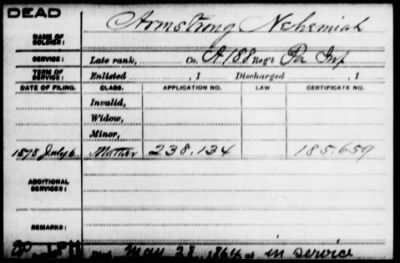 DEAD
NAME OF SOLDIER: Armstrong Nehemiah
SERVICE: Late rank, Co. A. 188 Reg't Pa Inf
TERM OF SERVICE: Enlisted , 1 Discharged , 1
DATE OF FILING. CLASS. APPLICATION NO. LAW. CERTIFICATE NO.
Invalid,
Widow,
Minor,
1878 July 6 Mother 238.134 185.659
ADDITIONAL SERVICES:
REMARKS:
May 28, 1864 in service